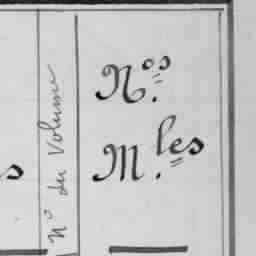 N° du Volume
N.os
M.les